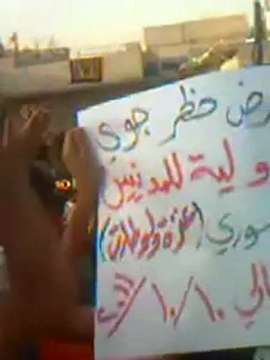 رض حظر جوي
ولية للمدنيين
سوري (عنزة ولوطارت)
١٠/١٠